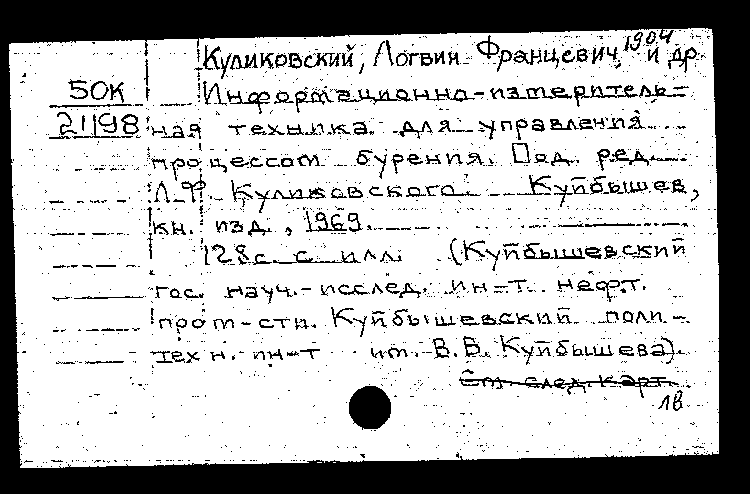 Куликовский, Логвин Францевич, 1904 и др
50К
Информационно-измеритель-
21198
ная техника для управления
процессом бурения. Под ред.
Л.Ф. Куликовского. Куйбышев,
кн. изд., 1969.
128с. с илл. (Куйбышевский
гос. науч.-исслед. ин-т нефт.
пром-сти. Куйбышевский поли-
техн. ин-т им. В.В. Куйбышева).
См. след. карт.
1в